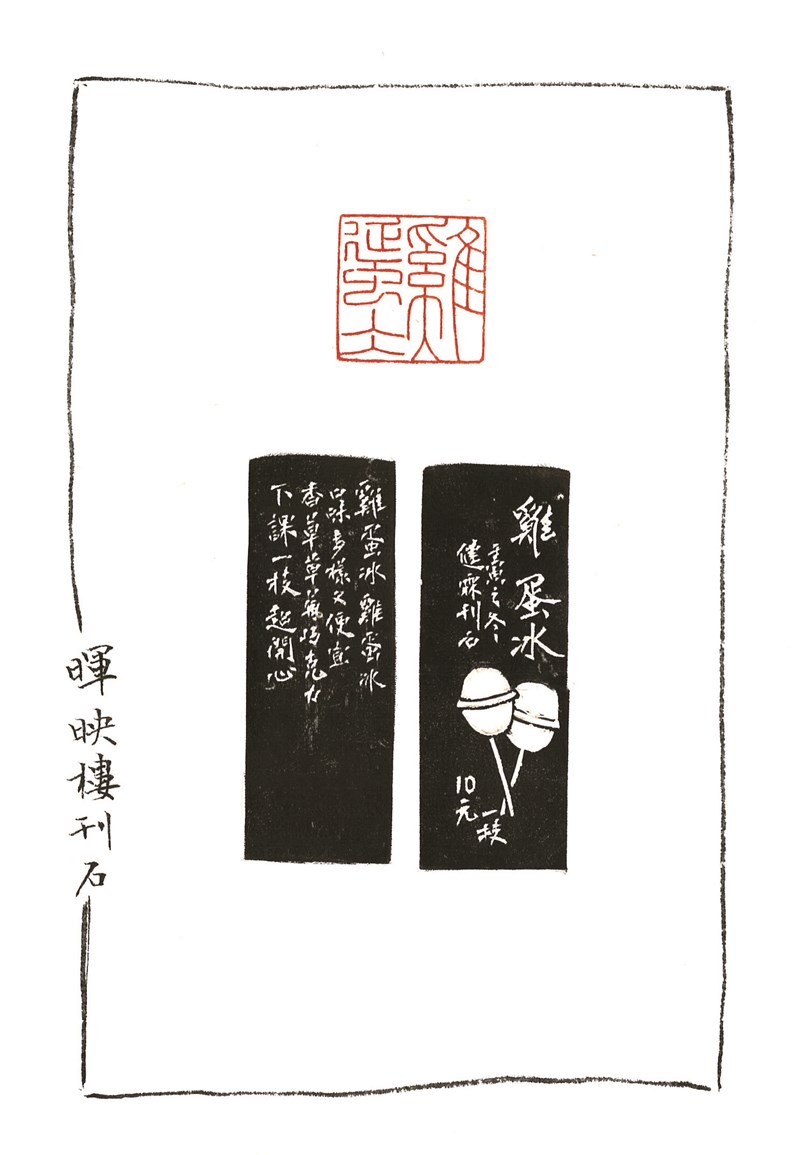 雞
雞蛋冰
壬寅之冬
健霖刊石
10元
一枝
雞蛋冰雞蛋冰
口味多樣又便宜
香草草莓巧克力
下課一枝超開心
暉映樓刊石